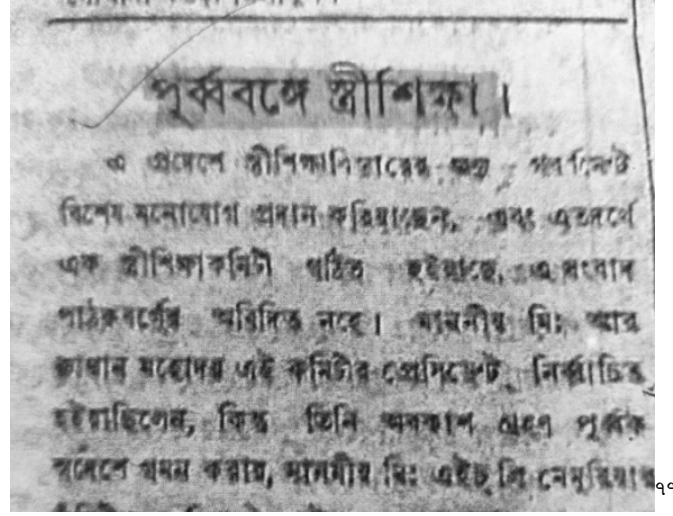 পূর্ব্ববঙ্গে স্ত্রীশিক্ষা।
এ প্রদেশে স্ত্রীশিক্ষাবিস্তারের জন্য গবর্ণমেন্ট
বিশেষ মনোযোগ প্রদান করিয়াছেন, এবং এতদর্থে
এক স্ত্রীশিক্ষাকমিটী গঠিত হইয়াছে, এ সংবাদ
পাঠকবর্গের অবিদিত নহে। মাননীয় মিঃ আর
মহোদয় এই কমিটীর প্রেসিডেন্ট নির্ব্বাচিত
হইয়াছিলেন, কিন্তু তিনি অবকাশ গ্রহণ পূর্ব্বক
স্বদেশে গমন করায়, মাননীয় মিঃ এইচ্ লি